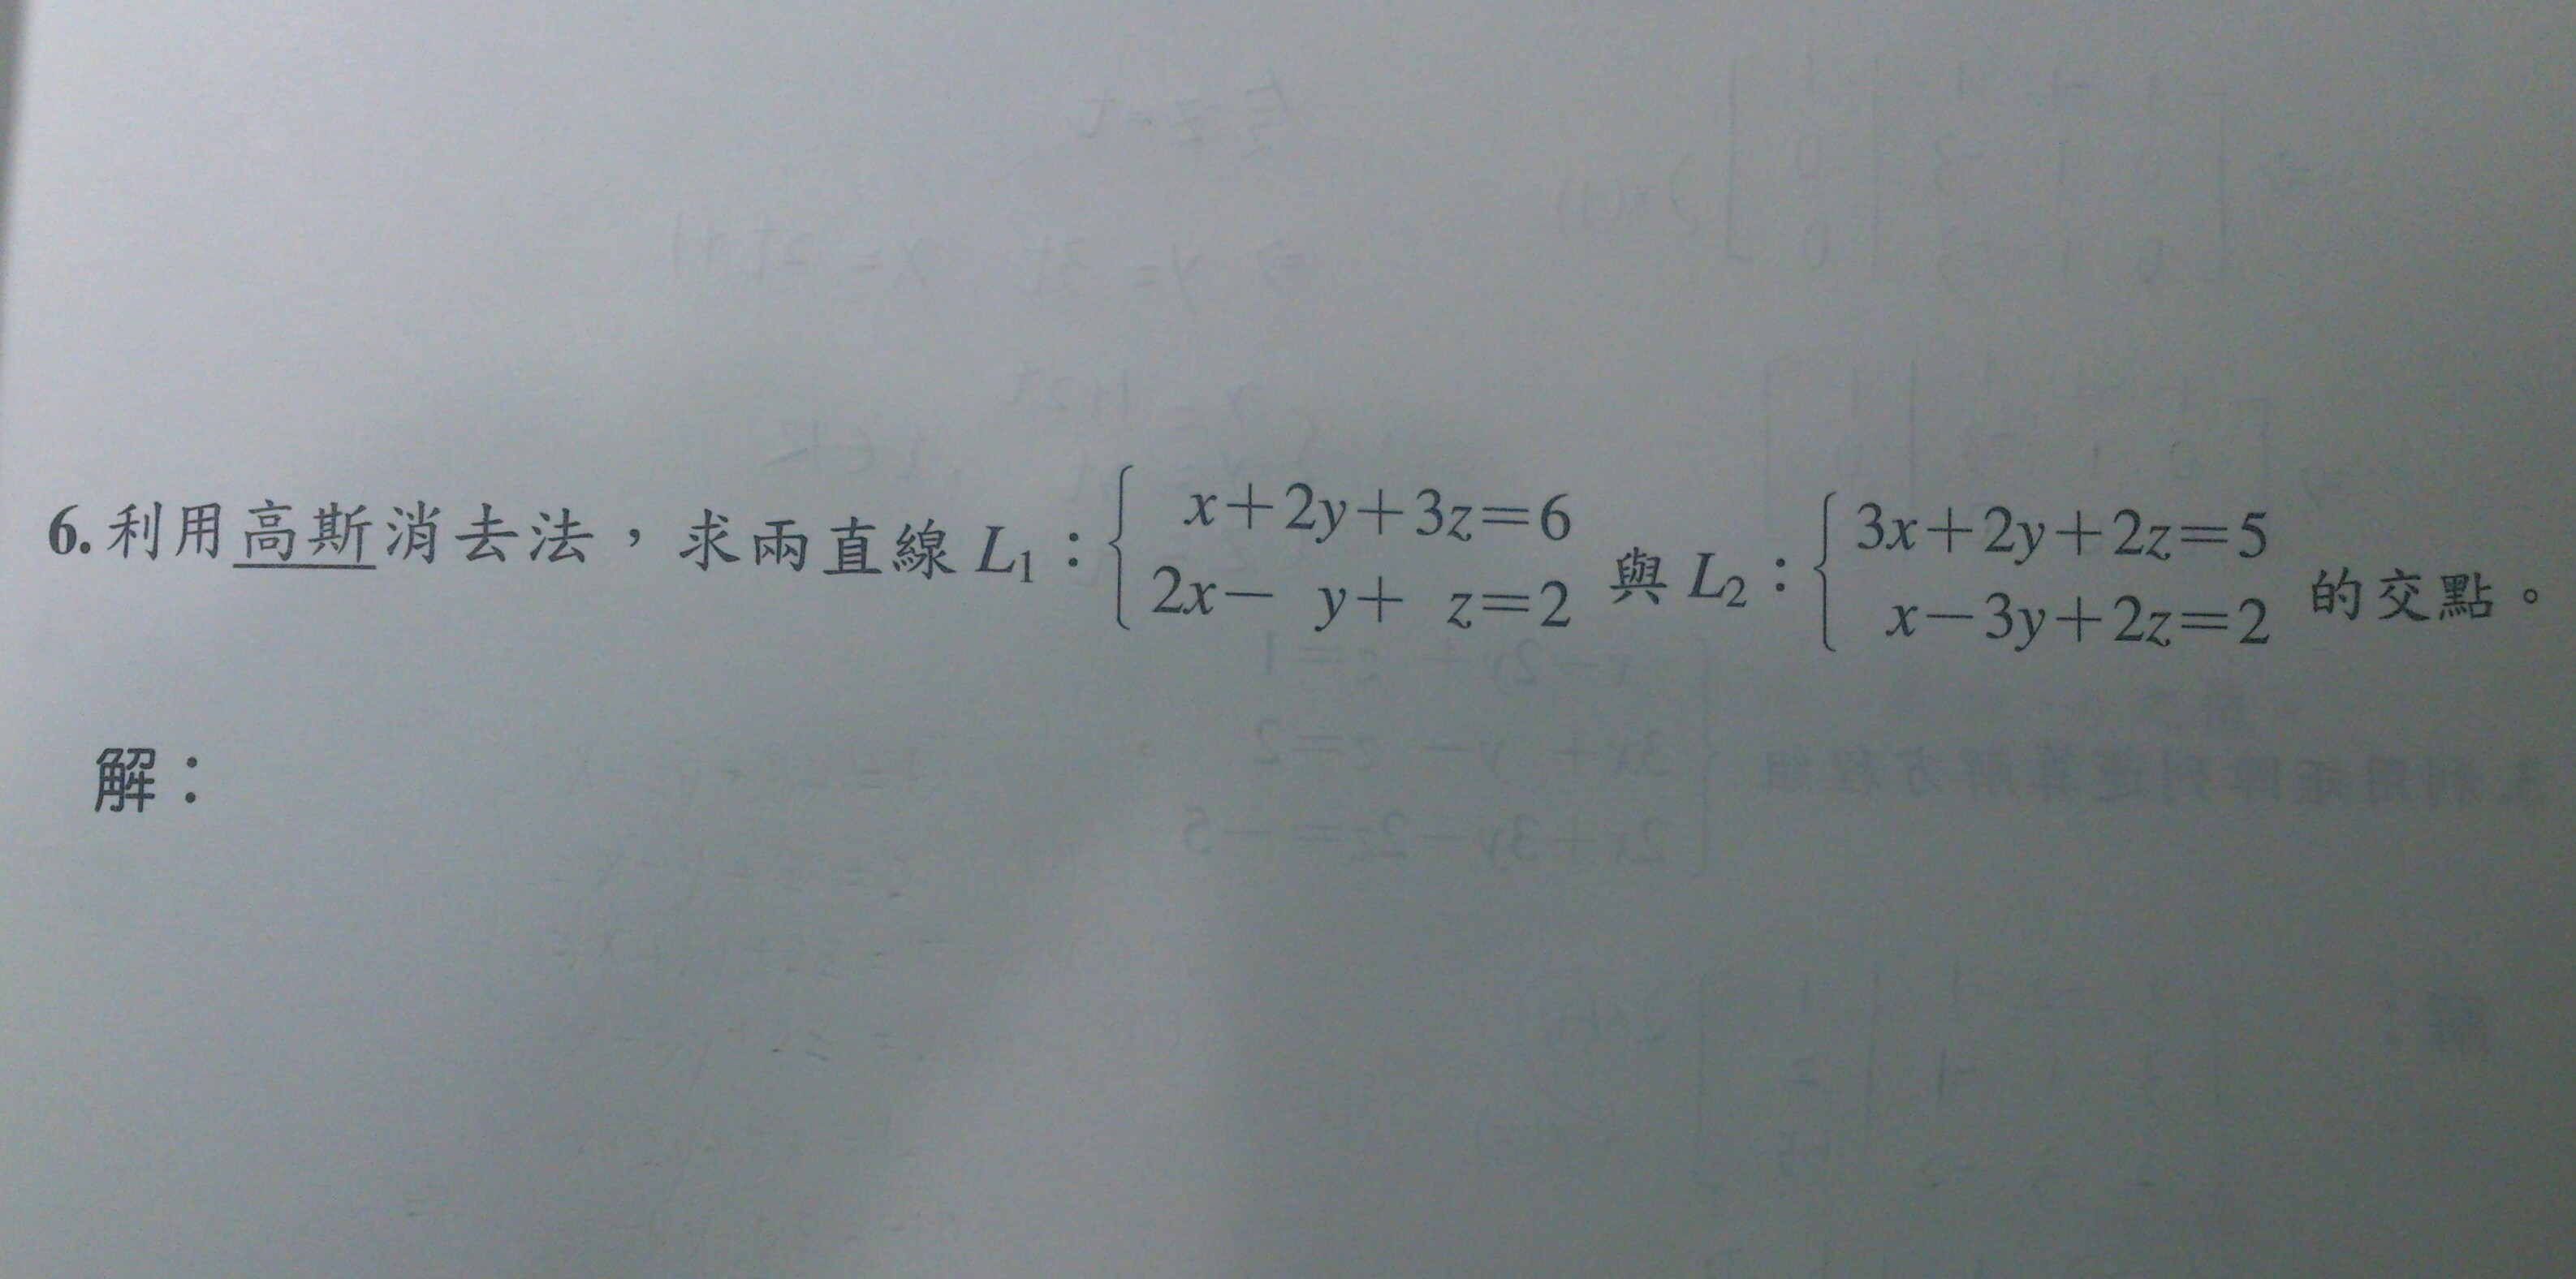 6. 利用高斯消去法，求兩直線 L₁：{ x+2y+3z=6 2x- y+ z=2 與 L₂：{ 3x+2y+2z=5 x-3y+2z=2 的交點。
解：